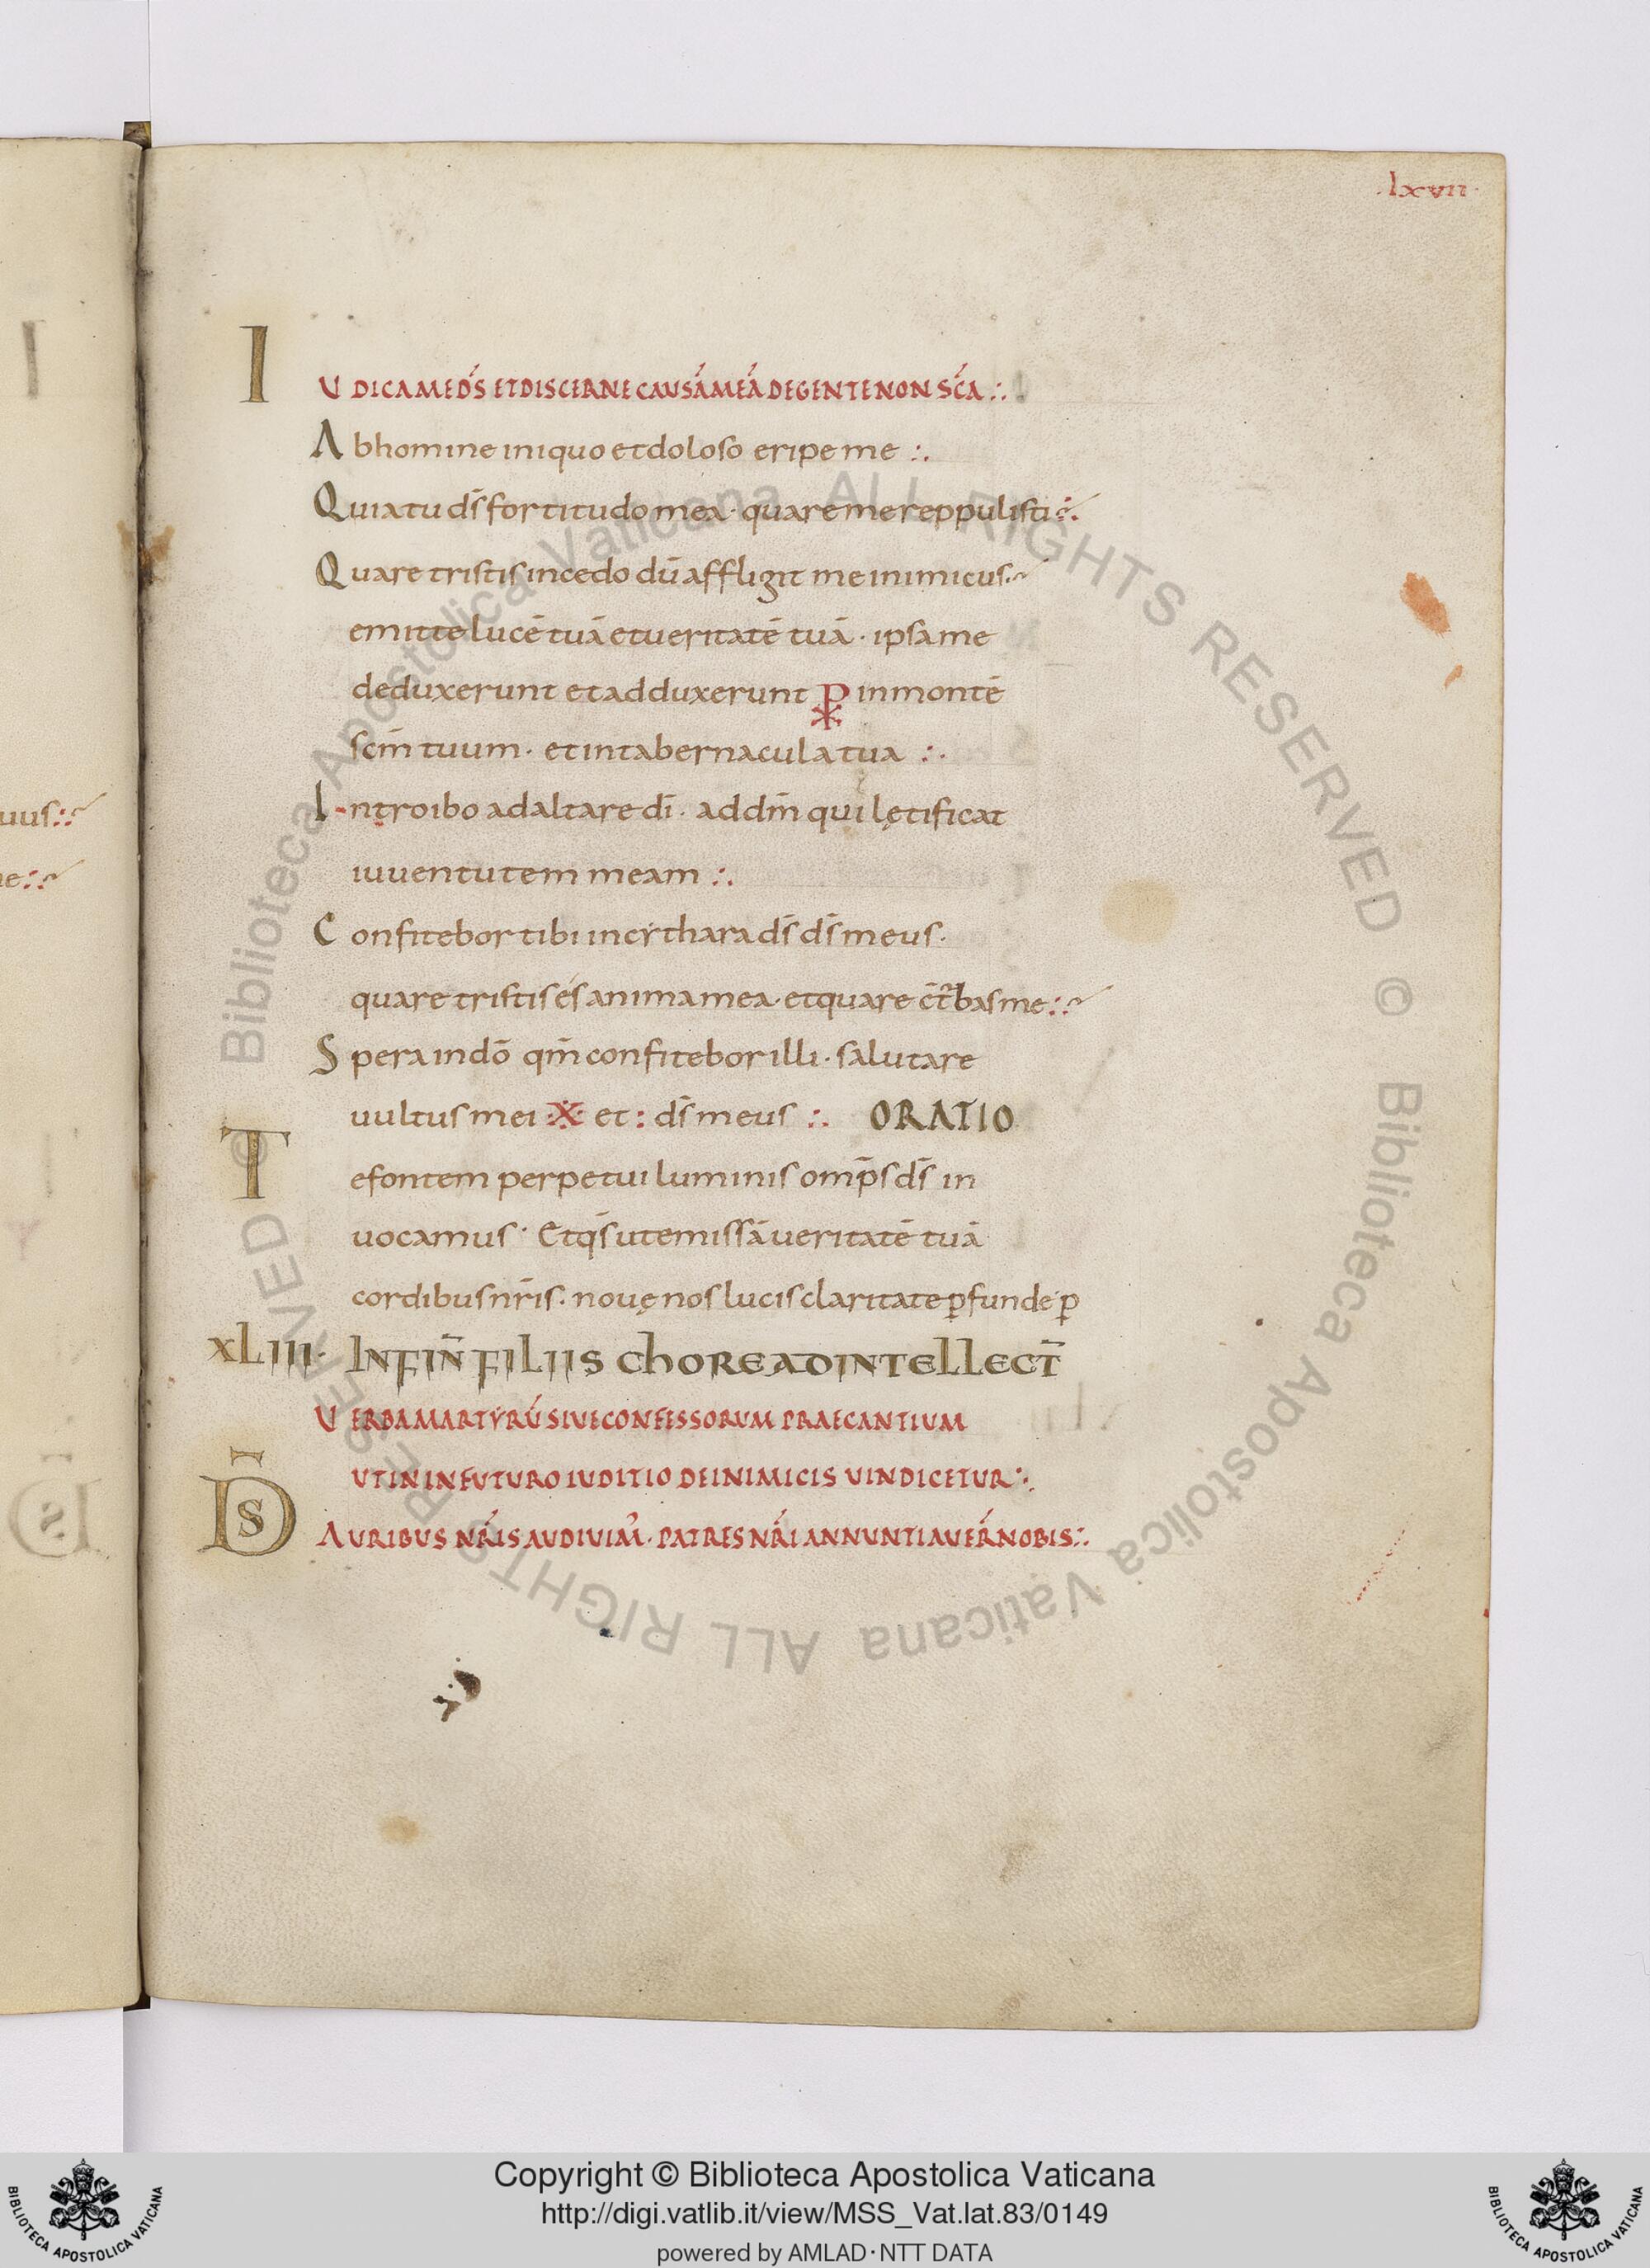 ·lxvii·
IUDICA ME D̄S ET DISCERNE CAUSĀ MEĀ DE GENTE NON SC̄A :·
Ab homine iniquo et doloso eripe me :·
Quia tu d̄s fortitudo mea · quare me reppulisti :·
Quare tristis incedo dū affligit me inimicus :·
emitte lucē tuā et ueritatē tuā · ipsa me
deduxerunt et adduxerunt ⳩ in montē
sc̄m tuum · et in tabernacula tua :·
uus :·
Introibo ad altare dī · ad dm̄ qui lętificat
iuuentutem meam :·
Confitebor tibi in cẏthara d̄s d̄s meus ·
quare tristis és anima mea · et quare c̄t̄bas me :·
Spera in dō qm̄ confitebor illi · salutare
uultus mei ·X· et : d̄s meus :· ORATIO
Te fontem perpetui luminis omp̄s d̄s in
uocamus · Et qs̄ ut emissā ueritatē tuā
cordibus nr̄is · nouę nos lucis claritate ꝑfunde · ꝑ
XLIII · IN FIN̄ FILIIS CHORE AD INTELLECT̄
UERBA MARTYRŪ SIUE CONFESSORUM PRAECANTIUM
UT IN IN FUTURO IUDITIO DE INIMICIS UINDICETUR :·
D̄S AURIBUS NR̄IS AUDIUIM̄ · PATRES NR̄I ANNUNTIAUER̄ NOBIS :·
© Biblioteca Apostolica Vaticana ALL RIGHTS RESERVED © Biblioteca Apostolica Vaticana ALL RIGHTS RESERVED
Copyright © Biblioteca Apostolica Vaticana
http://digi.vatlib.it/view/MSS_Vat.lat.83/0149
powered by AMLAD·NTT DATA
BIBLIOTECA APOSTOLICA VATICANA
BIBLIOTECA APOSTOLICA VATICANA